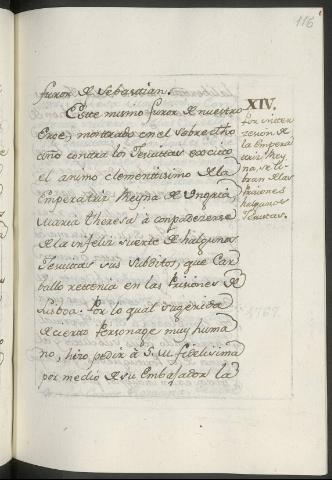 116
furor de Sebastian.
Este mismo furor de nuestro
Eroe, mostrado en el sobre dho
caño contra los Jesuitas excitó
el animo clementisimo de la
Emperatriz Reyna de Ungria,
Maria Theresa à conpadecerse
de la infeliz suerte de halgunos
Jesuitas sus subditos, que Car
ballo retenia en las Prisiones de
Lisboa. Por lo qual sugerida
de cierto Personage muy huma
no, hizo pedir à S. M. fidelisima
por medio de su Embajador la
XIV.
Por inter
zesion de
la Empera
triz Rey
na, se li
bran de las
prisiones
halgunos
Jesuitas.